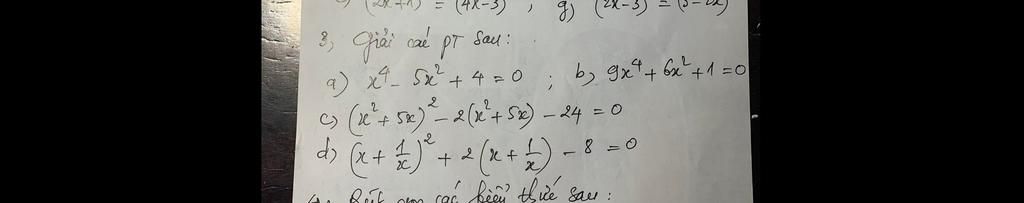 (2x+1) = (4x-3) ; g) (2x-3) = (5-2x)
3, Giải các PT sau:
a) x⁴ - 5x² + 4 = 0 ; b) 9x⁴ + 6x² + 1 = 0
c) (x² + 5x)² - 2(x² + 5x) - 24 = 0
d) (x + 1/x)² + 2(x + 1/x) - 8 = 0
Rút gọn các biểu thức sau: